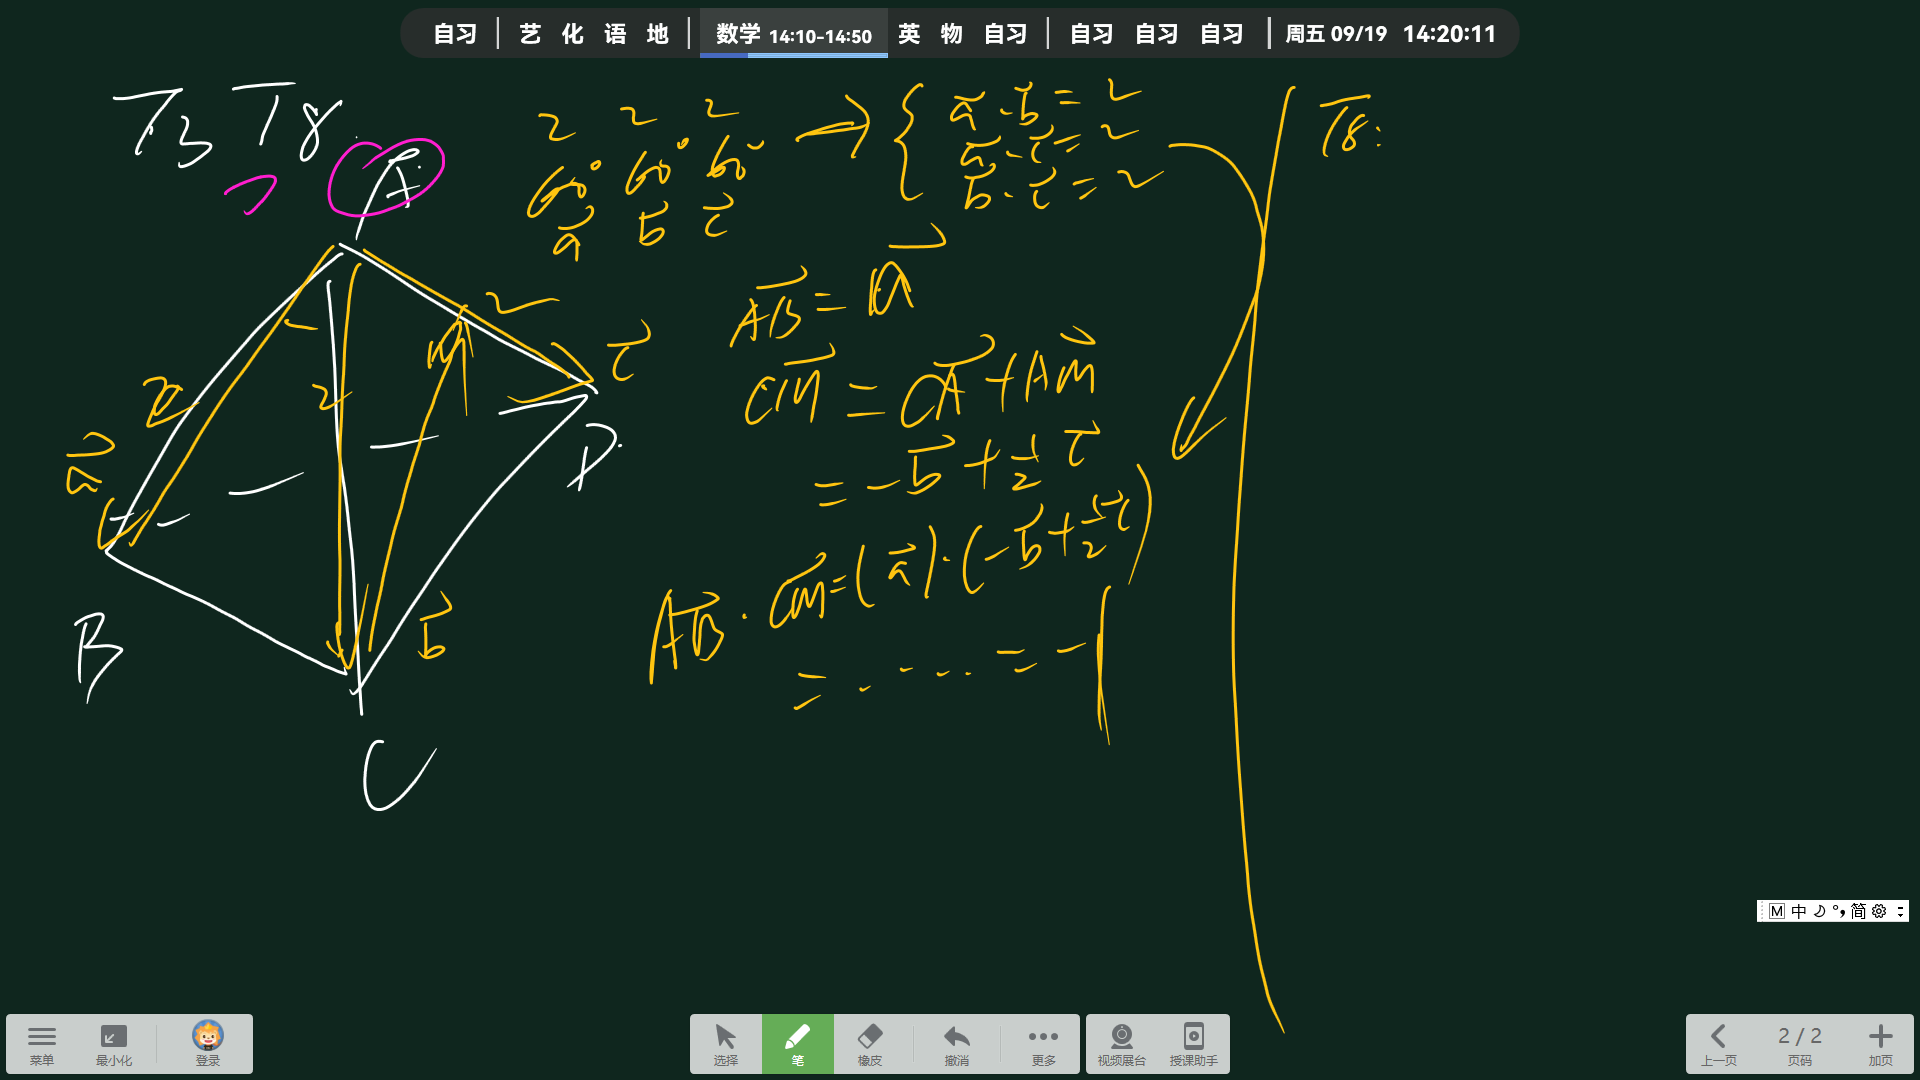 自习 | 艺 化 语 地 | 数学 14:10-14:50 英 物 自习 | 自习 自习 自习 | 周五 09/19 14:20:11
T3 T8
A
2 2 2
60° 60° 60°
a⃗ b⃗ c⃗
→ {
a⃗·b⃗=2
a⃗·c⃗=2
b⃗·c⃗=2
T8:
AB⃗=a⃗
CM⃗=CA⃗+AM⃗
=-b⃗+1/2 c⃗
AB⃗·CM⃗=(a⃗)·(-b⃗+1/2 c⃗)
=.....=-1
2
2
2
M
c⃗
D
a⃗
b⃗
B
C
M 中 简
菜单 最小化 登录
选择 笔 橡皮 撤消 更多
视频展台 授课助手
上一页 2 / 2 页码 加页